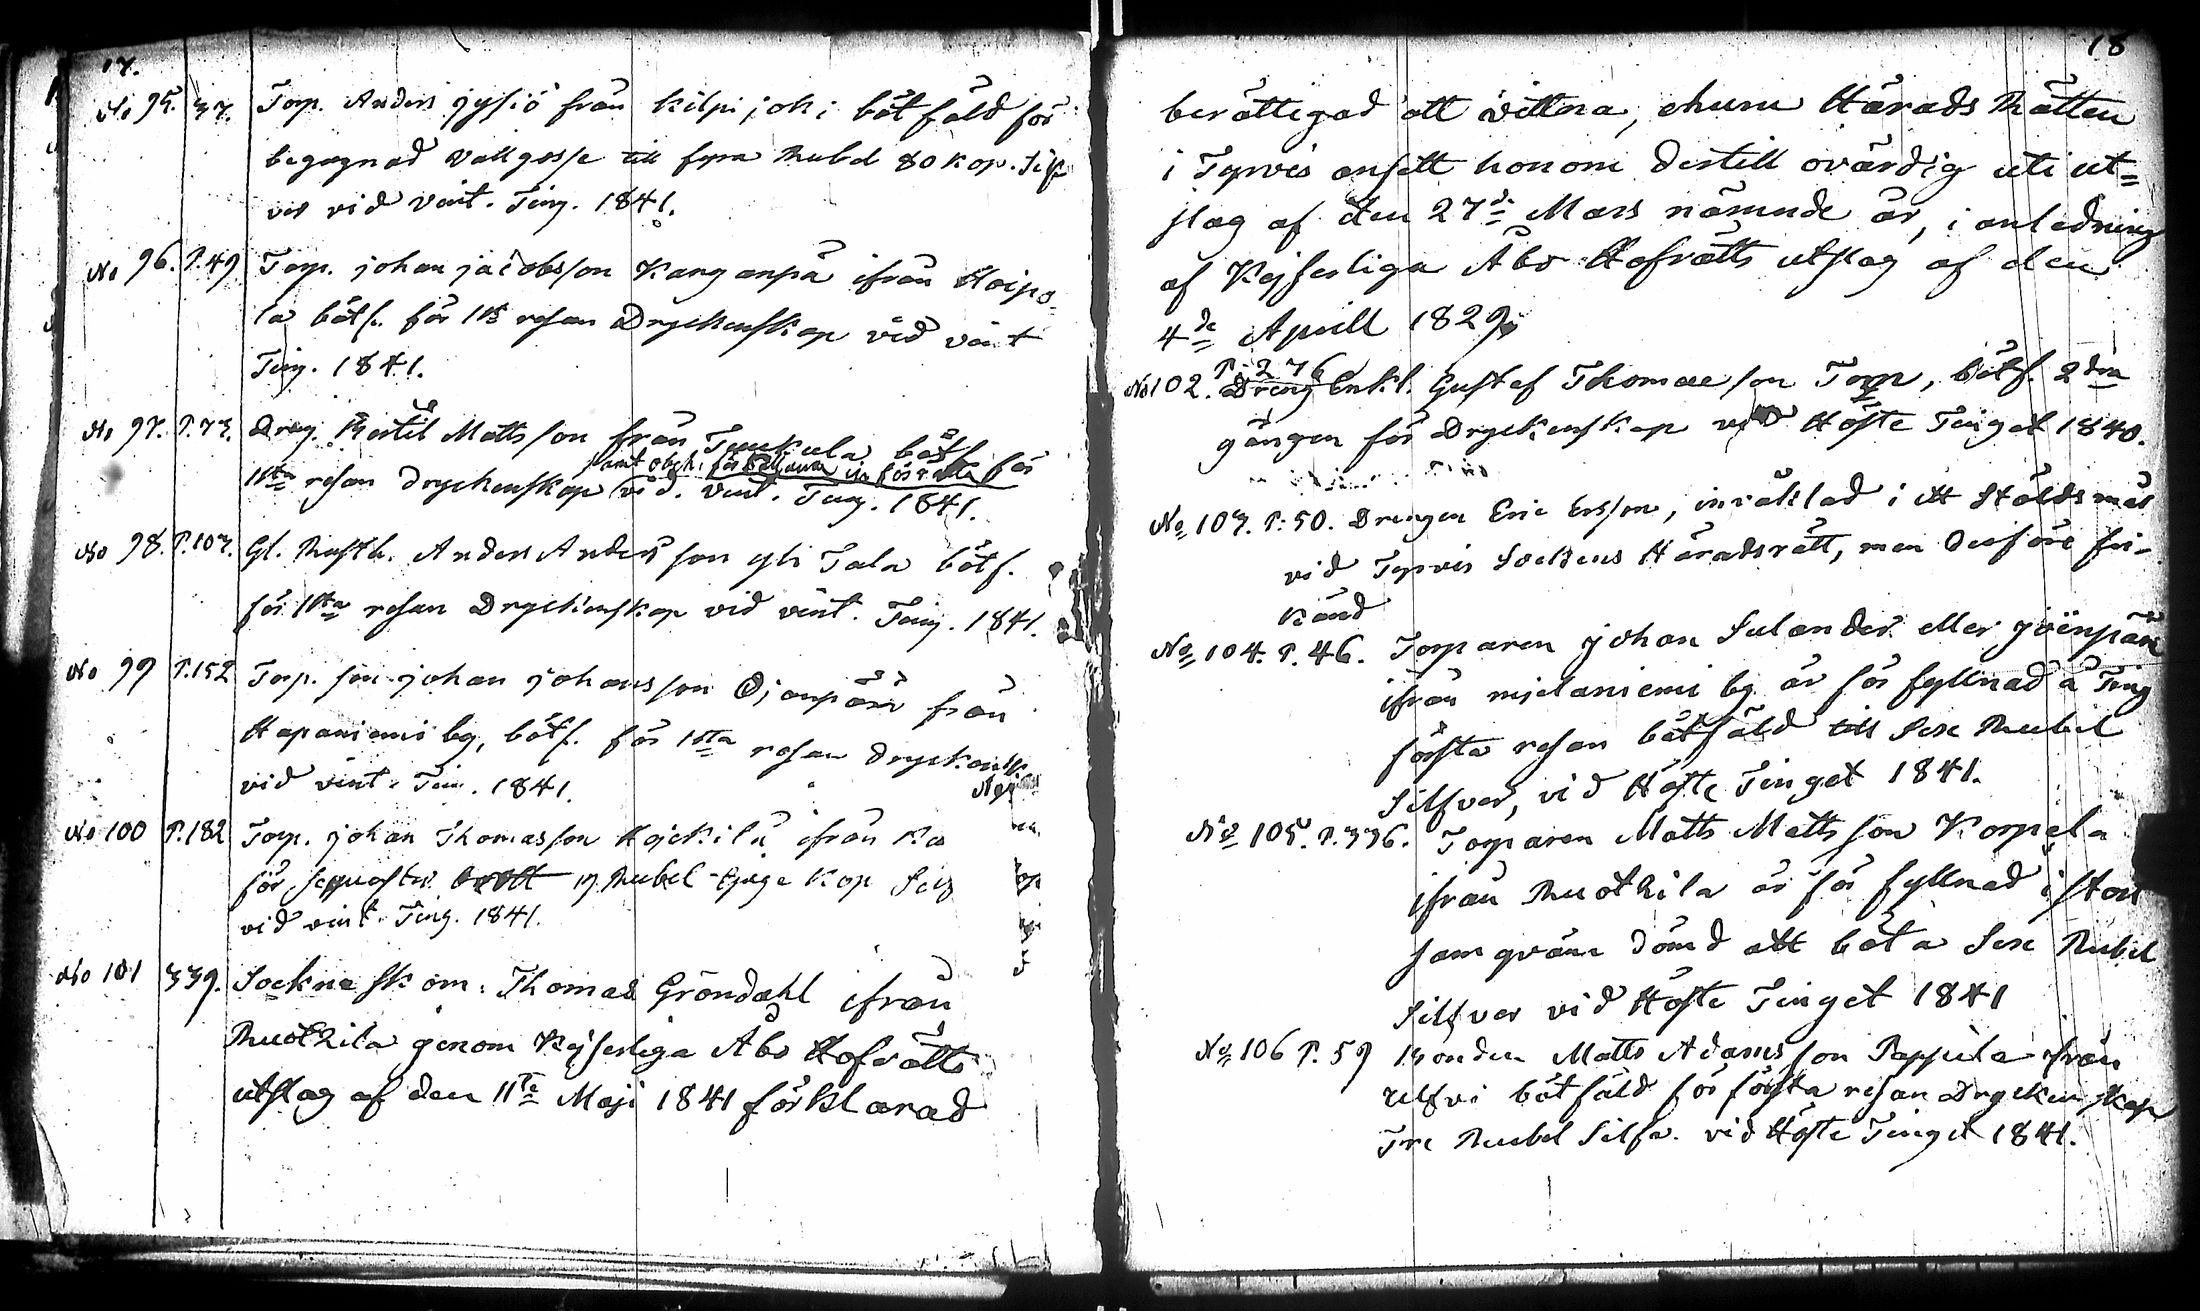 17.
No 95. 37. Torp. Anders jysiö från Kilpijoki bötfäld för
begagnad vallgosse till fyra Rubel 80 kop. Silf
ver vid vint. Ting. 1841.
No 96. P. 49 Torp. johan jacobsson Kanganpä ifrån Hoipo-
la bötf. för 1sta resan Dryckenskap vid vint
Ting. 1841.
No 97. P. 73. Dräng. Bertil Matts son från bötf. för
samt obeh. för
1sta resan Dryckenskap vid. vint. Ting. 1841.
No 98. P. 107. Gl. Rusth. Anders Anders son yli Tala bötf.
för 1sta resan Dryckenskap vid vint. Ting. 1841.
No 99 P. 152 Torp. son johan johans son Ojanpää från
Hapaniemi by, bötf. för 1sta resan Dryckensk
vid vint. Tin. 1841.
No 100 P. 182 Torp. johan Thomasson ifrån Ka
för Rubel kop Silf
vid vint. Ting. 1841.
No 101 339. Sockne skom: Thomas Gröndahl ifrån
Ruotzila genom Kejserliga Åbo Hofrätts
utslag af den 11te Maji 1841 förklarad
18
berättigad att vittna, ehuru Härads Rätten
i Tyrvis ansett honom dertill ovärdig uti ut=
slag af den 27de Mars nämnde år, i anledning
af Kejserliga Åbo Hofrätts utslag af den
4de Aprill 1829.
P. 276
No 102. Dreng Enkl. Gustaf Thomae son Torp, bötf. 2dra
gången för Dryckenskap vid Höste Tinget 1840.
No 103. P. 50. Drengen Eric Ersson, inväklad i ett Stöldsmål
vid Tyrvis Sockens Häradsrätt, men Derföre fri-
känd
No 104. P. 46. Torparen johan Sulander eller
ifrån by är för fyllnad å Ting
första resan bötfäld till Sex Rubel
Silfver, vid Höste Tinget 1841.
No 105. P. 336. Torparen Matts Matts son Korpela
ifrån Ruotzila är för fyllnad i
som qväm dömd att böta Sex Rubel
Silfver vid Höste Tinget 1841
No 106 P. 59 Bonden Matts Adams son Pappila från
bötfäld för första resan Dryckenskap
Tre Rubel Silfv. vid Höste Tinget 1841.